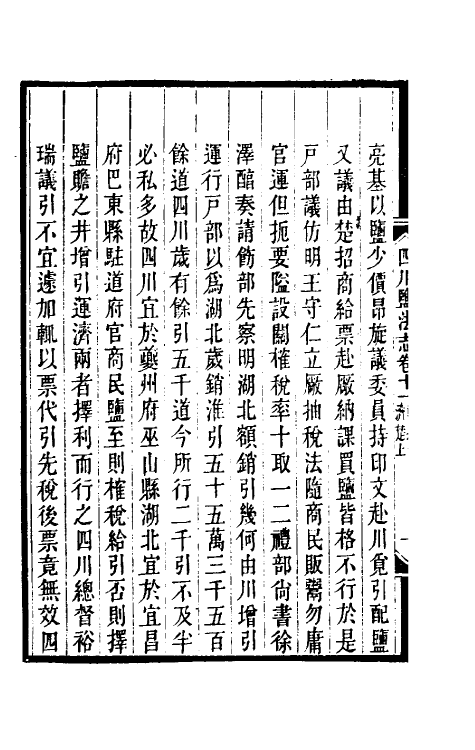 亮基以鹽少價昂旋議委員持印文赴川竟引配鹽
又議由楚招商給票赴厰納課買鹽皆格不行於是
戸部議仿明王守仁立厰抽稅法隨商民販鬻勿庸
官運但扼要隘設關榷稅率十取一二禮部尙書徐
澤醕奏請飭部先察明湖北額銷引幾何由川增引
運行戸部以爲湖北歲銷淮引五十五萬三千五百
餘道四川歲有餘引五千道今所行二千引不及半
必私多故四川宜於夔州府巫山縣湖北宜於宜昌
府巴東縣駐道府官商民鹽至則榷稅給引否則擇
鹽贍之井增引運濟兩者擇利而行之四川總督裕
瑞議引不宜遠加輒以票代引先稅後票竟無效四
四川鹽法志卷十一 上 一